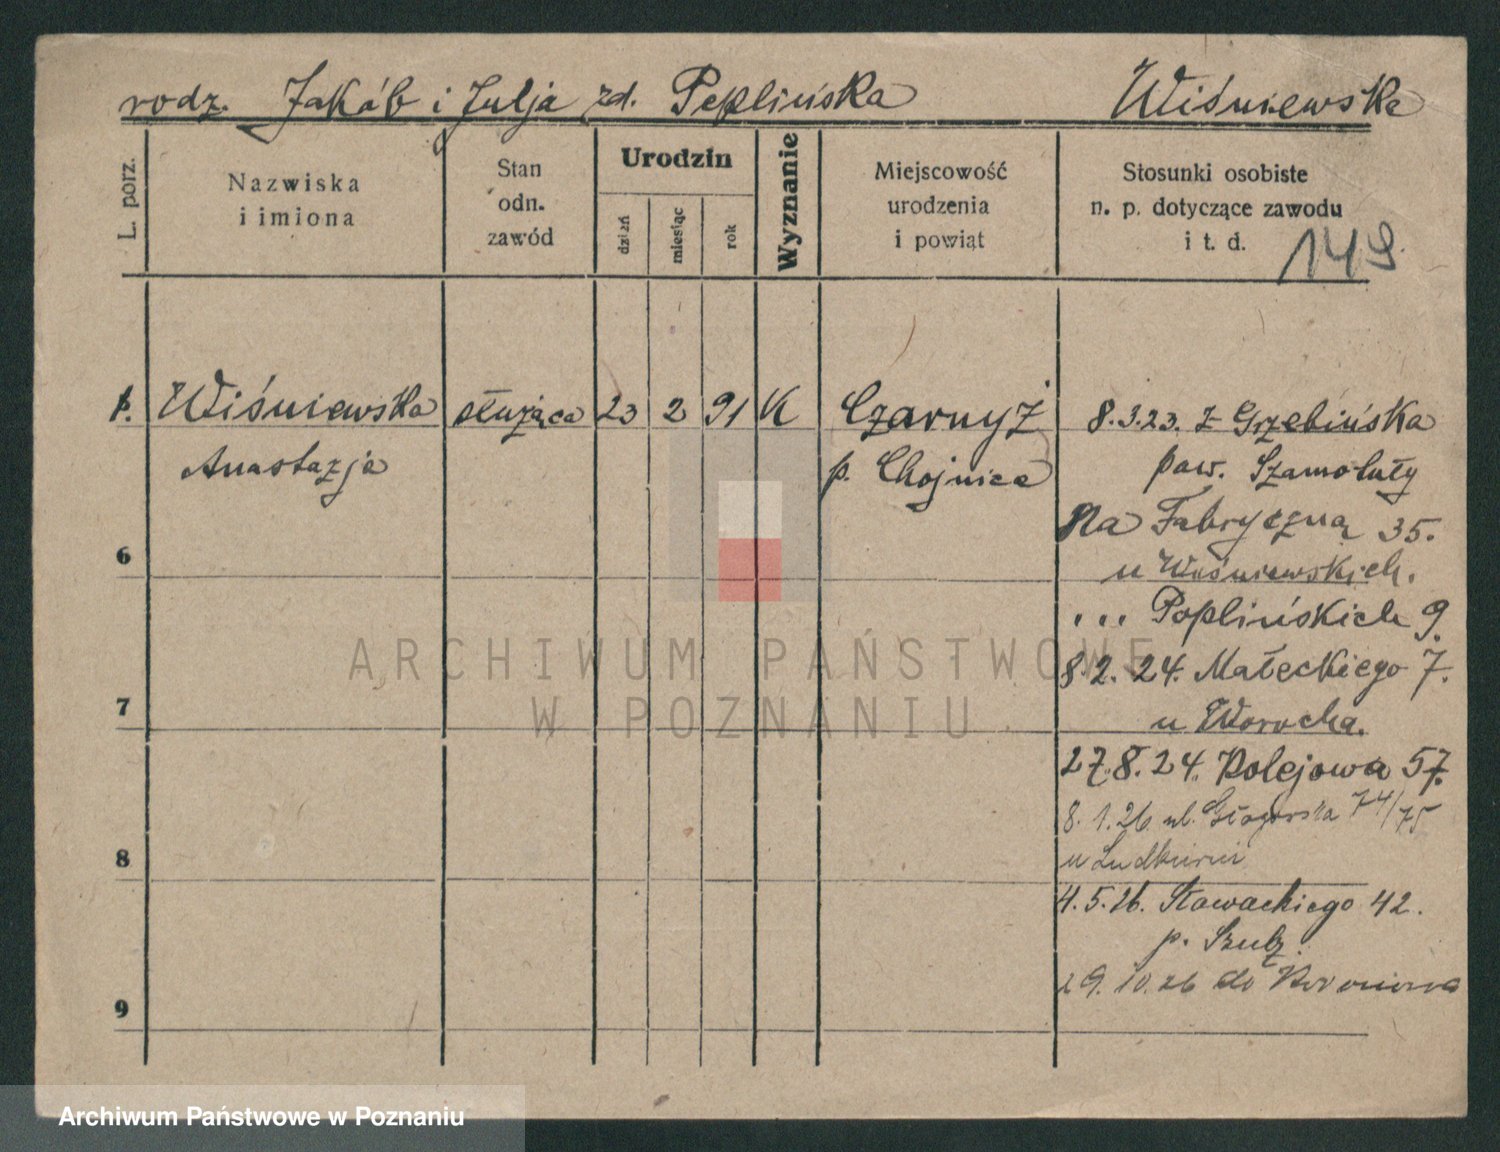 rodz. Jakób i Julja zd. Peplińska Wiśniewska
L. porz.
Nazwiska
i imiona
Stan
odn.
zawód
Urodzin
dzień
miesiąc
rok
Wyznanie
Miejscowość
urodzenia
i powiąt
Stosunki osobiste
n. p. dotyczące zawodu
i t. d. 149.
1. Wiśniewska służąca 23 2 91 K Czarnyż 8.3.23. z Grzebińska
Anastazja p. Chojnice pow. Szamotuły
Na Fabryczną 35.
6 u Wiśniewskich.
" " Poplińskich 9.
8.2.24. Małeckiego 7.
7 u Worocha.
27.8.24. Kolejowa 57.
8.1.26 ul. Głogowska 74/75
8 u
4.5.26. Słowackiego 42.
p. Szulz.
29.10.26 do Koronowa
9
ARCHIWUM PAŃSTWOWE
W POZNANIU
Archiwum Państwowe w Poznaniu